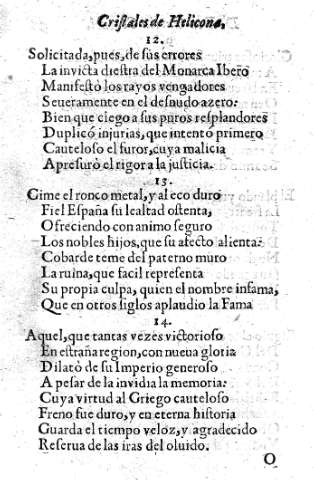 Cristales de Helicona,
12.
Solicitada, pues, de sus errores
La invicta diestra del Monarca Ibero
Manifestò los rayos vengadores
Seueramente en el desnudo azero:
Bien que ciego a sus puros resplandores
Duplicó injurias, que intentó primero
Cauteloso el furor, cuya malicia
Apresurò el rigor a la justicia.
13.
Gime el ronco metal, y al eco duro
Fiel España su lealtad ostenta,
Ofreciendo con animo seguro
Los nobles hijos, que su afecto alienta:
Cobarde teme del paterno muro
La ruina, que facil representa
Su propia culpa, quien el nombre infama,
Que en otros siglos aplaudio la Fama
14.
Aquel, que tantas vezes victorioso
En estraña region, con nueua gloria
Dilatò de su Imperio generoso
A pesar de la inuidia la memoria:
Cuya virtud al Griego cauteloso
Freno fue duro, y en eterna historia
Guarda el tiempo veloz, y agradecido
Reserua de las iras del oluido.
O